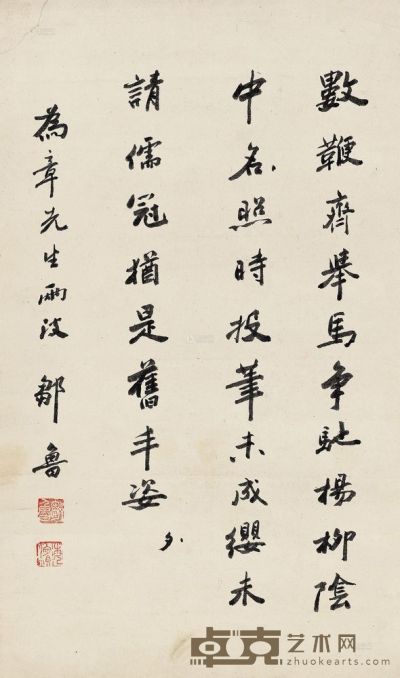 數鞭齊舉馬爭馳楊柳陰
中名照時投筆未成纓未
請儒冠猶是舊丰姿
夕
為章先生兩政 鄒魯
卓克艺术网
zhuokearts.com